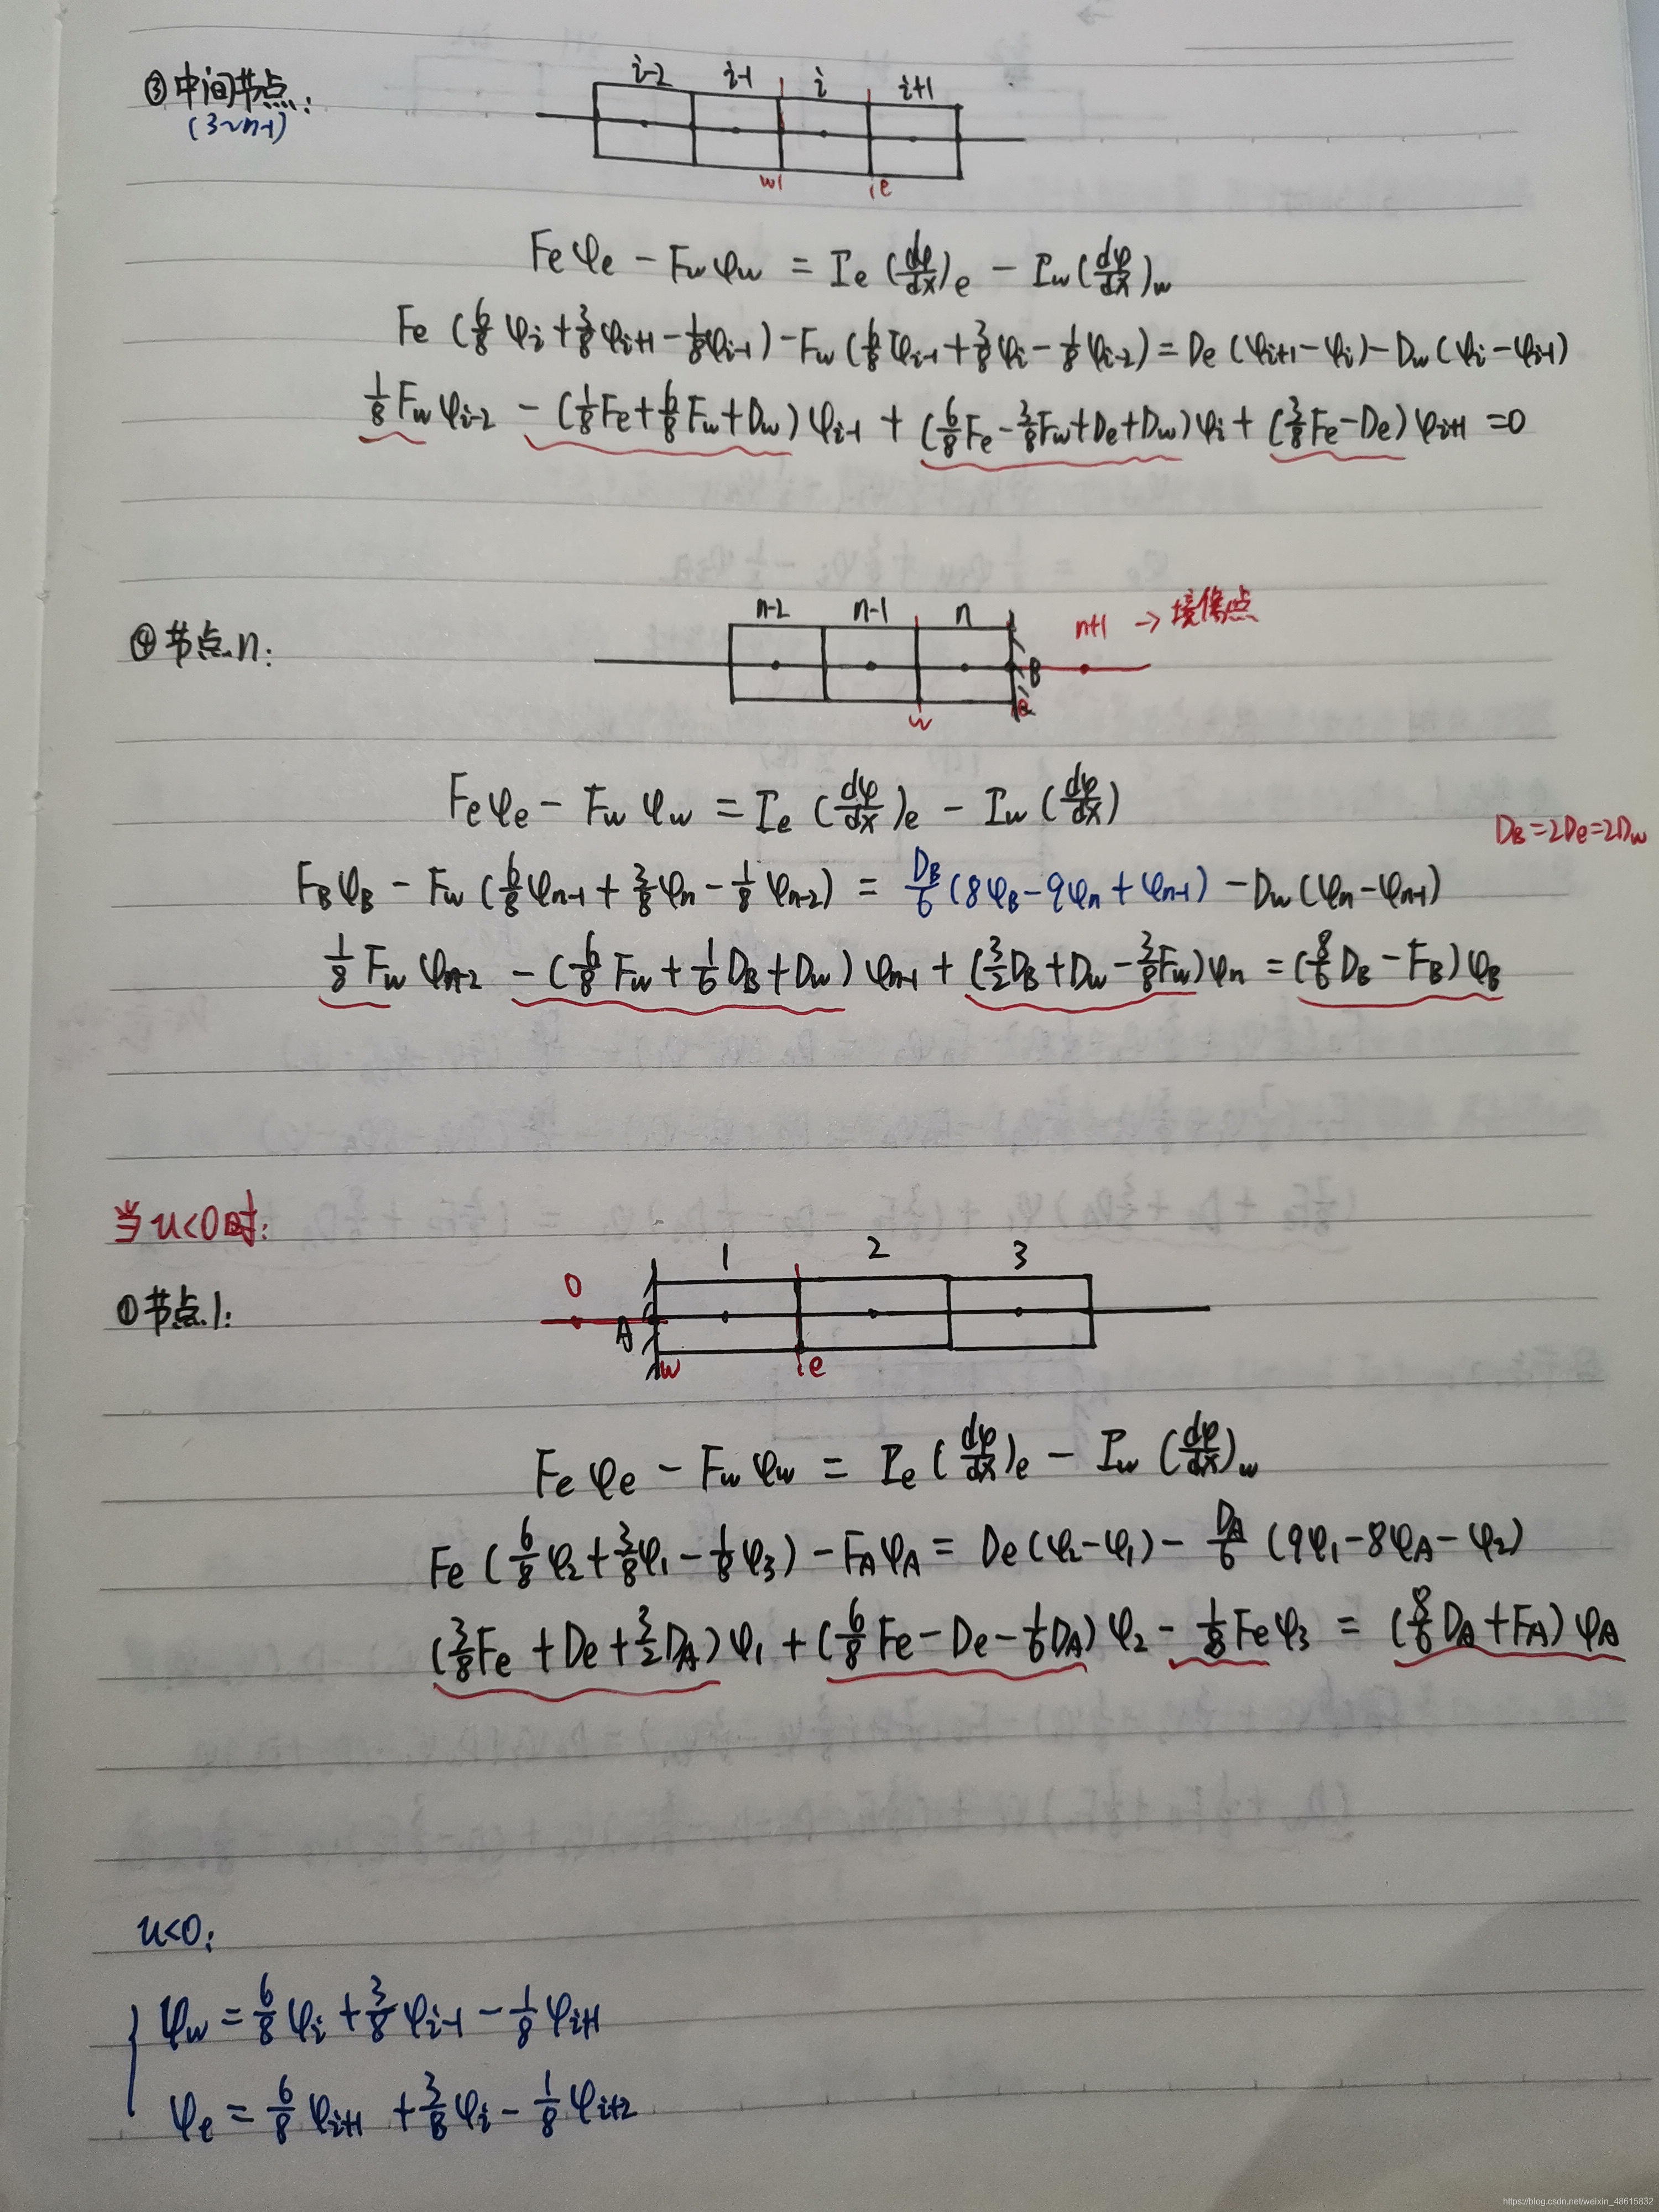 ③ 中间节点:
(3~n-1)
i-2 i-1 i i+1
w e
Feφe - Fwφw = Γe(dφ/dx)e - Γw(dφ/dx)w
Fe(6/8φi + 3/8φi+1 - 1/8φi-1) - Fw(6/8φi-1 + 3/8φi - 1/8φi-2) = De(φi+1 - φi) - Dw(φi - φi-1)
1/8Fwφi-2 - (1/8Fe + 6/8Fw + Dw)φi-1 + (6/8Fe - 3/8Fw + De + Dw)φi + (3/8Fe - De)φi+1 = 0
④ 节点n:
n-2 n-1 n n+1 → 镜像点
B
w e
Feφe - Fwφw = Γe(dφ/dx)e - Γw(dφ/dx)
DB=2De=2Dw
FBφB - Fw(6/8φn-1 + 3/8φn - 1/8φn-2) = DB/6(8φB - 9φn + φn-1) - Dw(φn - φn-1)
1/8Fwφn-2 - (6/8Fw + 1/6DB + Dw)φn-1 + (3/2DB + Dw - 3/8Fw)φn = (8/6DB - FB)φB
当u<0时:
① 节点1:
0 1 2 3
A
w e
Feφe - Fwφw = Γe(dφ/dx)e - Γw(dφ/dx)w
Fe(6/8φ2 + 3/8φ1 - 1/8φ3) - FAφA = De(φ2 - φ1) - DA/6(9φ1 - 8φA - φ2)
(3/8Fe + De + 3/2DA)φ1 + (6/8Fe - De - 1/6DA)φ2 - 1/8Feφ3 = (8/6DA + FA)φA
u<0:
φw = 6/8φi + 3/8φi-1 - 1/8φi+1
φe = 6/8φi+1 + 3/8φi - 1/8φi+2
https://blog.csdn.net/weixin_48615832